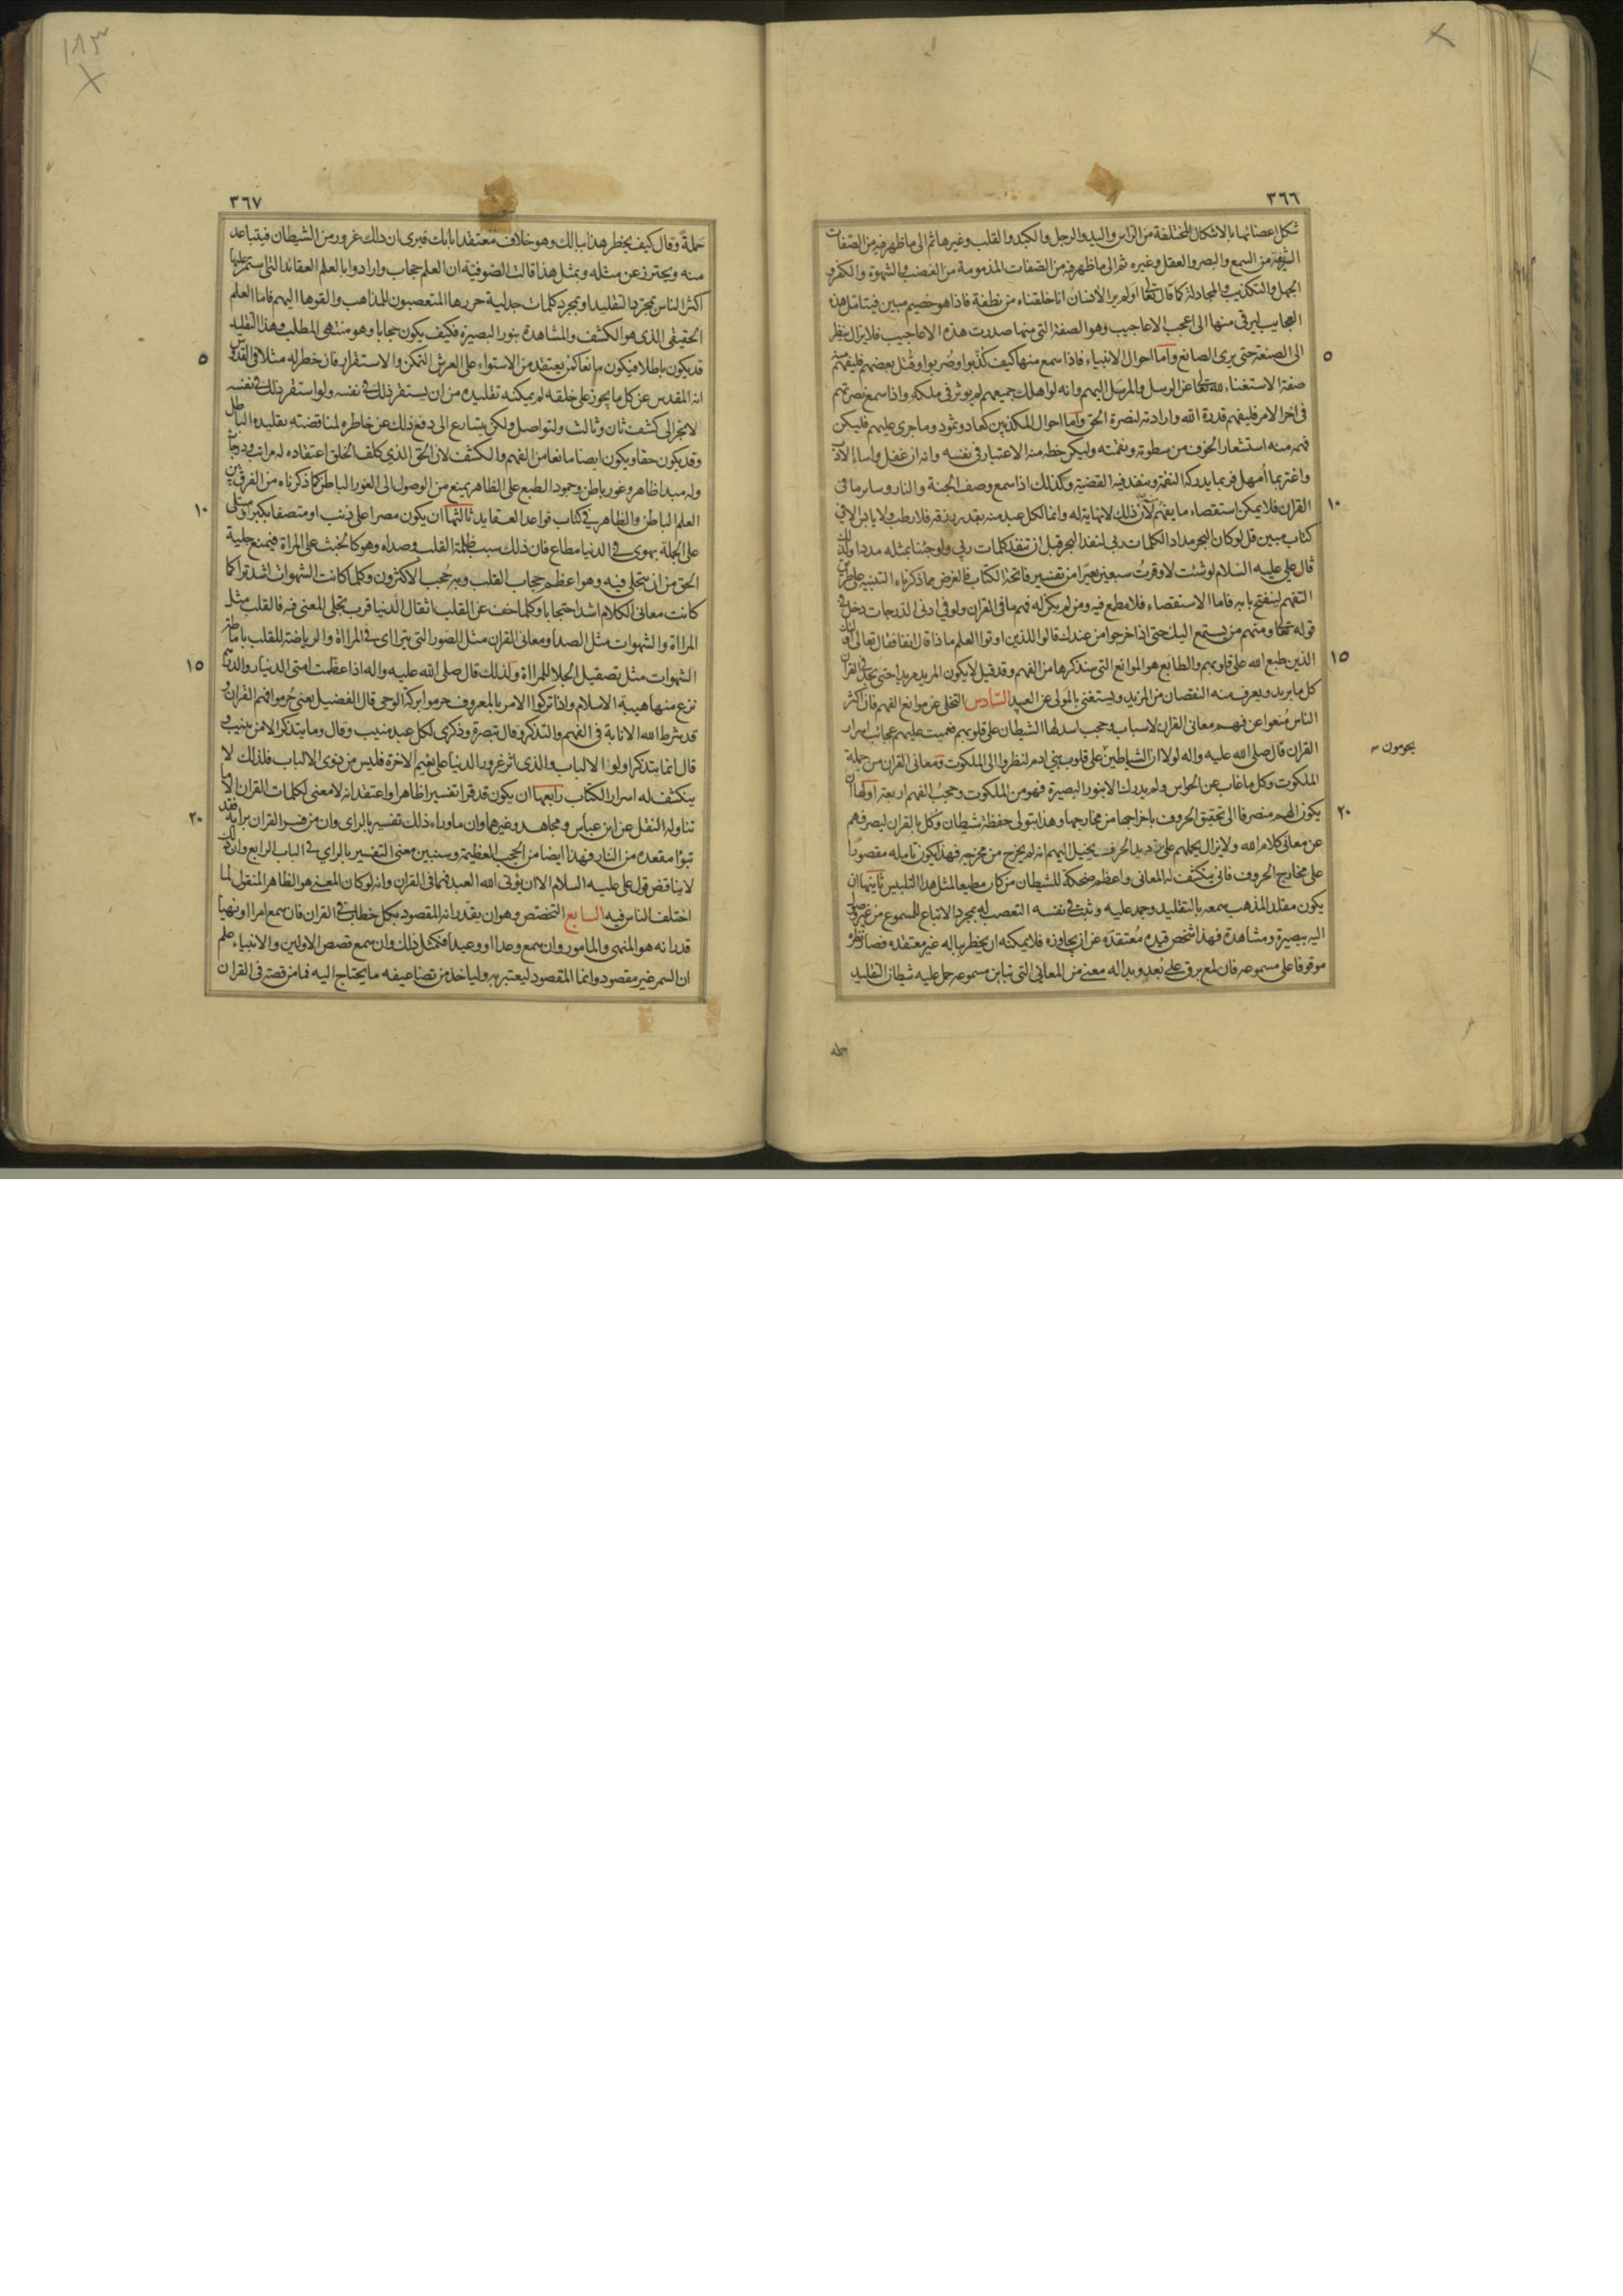 ٣٦٦
شكل اعضائها بالاشكال المختلفة من الراس واليد والرجل والكبد والقلب وغيرها ثم الى ما ظهر فيه من الصفات
الشريفة من السمع والبصر والعقل وغيره ثم الى ما ظهر فيه من الصفات المذمومة من الغضب والشهوة والكفر و
الجهل والتكذيب والمجادلة كما قال تعالى اولم ير الانسان انا خلقناه من نطفة فاذا هو خصيم مبين فيتامل هذه
العجايب ليرقى منها الى اعجب الاعاجيب وهو الصفة التى منها صدرت هذه الاعاجيب فلا يزال ينظر
الى الصنعة حتى يرى الصانع واما احوال الانبياء فاذا سمع منها كيف كذبوا وضربوا وقتل بعضهم فليفهم منه
٥
صفة الاستغناء لله تعالى عن الرسل والمرسل اليهم وانه لو اهلك جميعهم لم يوثر فى ملكه واذا سمع نصرتهم
فى اخر الامر فليفهم قدرة الله وارادته لنصرة الحق واما احوال المكذبين كعاد وثمود وما جرى عليهم فليكن
فهمه منه استشعار الخوف من سطوته ونقمته وليكن حظه منه الاعتبار فى نفسه وانه ان غفل واساء الادب
واغتر بما امهل فربما يدركه النقمة وينفذ فيه القضية وكذلك اذا سمع وصف الجنة والنار وساير ما فى
القران فلا يمكن استقصاء ما يفهم لان ذلك لا نهاية له وانما لكل عبد منه بقدر رزقه فلا رطب ولا يابس الا فى
١٠
كتاب مبين قل لو كان البحر مدادا لكلمات ربى لنفد البحر قبل ان تنفد كلمات ربى ولو جئنا بمثله مددا ولذلك
قال على عليه السلام لو شئت لاوقرت سبعين بعيرا من تفسير فاتحة الكتاب فالغرض مما ذكرناه التنبيه على طريق
التفهم لينفتح بابه فاما الاستقصاء فلا مطمع فيه ومن لم يكن له فهم ما فى القران ولو فى ادنى الدرجات دخل فى
قوله تعالى ومنهم من يستمع اليك حتى اذا خرجوا من عندك قالوا للذين اوتوا العلم ماذا قال انفا فقال تعالى اولئك
الذين طبع الله على قلوبهم والطابع هو الموانع التى سنذكرها من الفهم وقد قيل لا يكون المريد مريدا حتى يجد فى القران
١٥
كل ما يريد ويعرف منه النقصان من المزيد ويستغنى بالمولى عن العبيد السادس التخلى عن موانع الفهم فان اكثر
الناس منعوا عن فهم معانى القران لاسباب وحجب اسدلها الشيطان على قلوبهم فعميت عليهم عجائب اسرار
القران قال صلى الله عليه واله لولا ان الشياطين على قلوب بنى ادم لنظروا الى الملكوت ومعانى القران من جملة
يحومون
الملكوت وكل ما غاب عن الحواس ولم يدرك الا بنور البصيرة فهو من الملكوت وحجب الفهم اربعة اولها ان
يكون الهم منصرفا الى تحقيق الحروف باخراجها من مخارجها وهذا يتولى حفظه شيطان وكل بالقران ليصرفهم
٢٠
عن معانى كلام الله ولا يزال يحملهم على ترديد الحرف يخيل اليهم انه لم يخرج من مخرجه فهذا يكون تامله مقصورا
على مخارج الحروف فانى ينكشف له المعانى واعظم ضحكة للشيطان من كان مطيعا لمثل هذا التلبيس ثانيتها ان
يكون مقلدا لمذهب سمعه بالتقليد وجمد عليه وثبت فى نفسه التعصب له بمجرد الاتباع للمسموع من غير وصول
اليه ببصيرة ومشاهدة فهذا شخص قيده معتقده عن ان يجاوزه فلا يمكنه ان يخطر بباله غير معتقده فصار نظره
موقوفا على مسموعه فان لمع برق على بعد وبدا له معنى من المعانى التى تباين مسموعه حمل عليه شيطان التقليد
حمله
٣٦٧
حملة وقال كيف يخطر هذا ببالك وهو خلاف معتقد ابائك فيرى ان ذلك غرور من الشيطان فيتباعد
منه ويحترز عن مثله وبمثل هذا قالت الصوفية ان العلم حجاب وارادوا بالعلم العقائد التى استمر عليها
اكثر الناس بمجرد التقليد او بمجرد كلمات جدلية حررها المتعصبون للمذاهب والقوها اليهم فاما العلم
الحقيقى الذى هو الكشف والمشاهدة بنور البصيرة فكيف يكون حجابا وهو منتهى المطلب وهذا التقليد
قد يكون باطلا فيكون مانعا كمن يعتقد من الاستواء على العرش التمكن والاستقرار فان خطر له مثلا فى القدوس
٥
انه المقدس عن كل ما يجوز على خلقه لم يمكنه تقليده من ان يستقر ذلك فى نفسه ولو استقر ذلك فى نفسه
لانجر الى كشف ثان وثالث ولتواصل ولكن يتسارع الى دفع ذلك عن خاطره لمناقضته بقليده الباطل
وقد يكون حقا ويكون ايضا مانعا من الفهم والكشف لان الحق الذى كلف الخلق اعتقاده له مراتب ودرجات
وله مبدا ظاهر وغور باطن وجمود الطبع على الظاهر يمنع من الوصول الى الغور الباطن كما ذكرناه من الفرق بين
العلم الباطن والظاهر فى كتاب قواعد العقايد ثالثها ان يكون مصرا على ذنب او متصفا بكبر او مبتلى
١٠
على الجملة بهوى فى الدنيا مطاع فان ذلك سبب ظلمة القلب وصداه وهو كالخبث على المراة فيمنع جلية
الحق من ان يتجلى فيه وهو اعظم حجاب القلب وبه حجب الاكثرون وكلما كانت الشهوات اشد تراكما
كانت معانى الكلام اشد احتجابا وكلما خف عن القلب اثقال الدنيا قرب تجلى المعنى فيه فالقلب مثل
المراة والشهوات مثل الصدأ ومعانى القران مثل الصور التى تتراءى فى المراة والرياضة للقلب باماطة
الشهوات مثل تصقيل الجلا للمراة ولذلك قال صلى الله عليه واله اذا عظمت امتى الدنيار والدرهم
١٥
نزع منها هيبة الاسلام واذا تركوا الامر بالمعروف حرموا بركة الوحى قال الفضيل يعنى حرموا فهم القران و
قد شرط الله الانابة فى الفهم والتذكر وقال تبصرة وذكرى لكل عبد منيب وقال وما يتذكر الا من ينيب و
قال انما يتذكر اولوا الالباب والذى اثر غرور الدنيا على نعيم الاخرة فليس من ذوى الالباب فلذلك لا
ينكشف له اسرار الكتاب رابعها ان يكون قد قرا تفسيرا ظاهرا واعتقد انه لا معنى لكلمات القران الا ما
تناوله النقل عن ابن عباس ومجاهد وغيرهما وان ما وراء ذلك تفسير بالراى وان من فسر القران برايه فقد
٢٠
تبوأ مقعده من النار فهذا ايضا من الحجب العظيمة وسنبين معنى التفسير بالراى فى الباب الرابع وان ذلك
لا يناقض قول على عليه السلام الا ان يؤتى الله العبد فهما فى القران وانه لو كان المعنى هو الظاهر المنقول لما
اختلف الناس فيه السابع التخصص وهو ان يقدر انه المقصود بكل خطاب فى القران فان سمع امرا او نهيا
قدر انه هو المنهى والمامور وان سمع وعدا او وعيدا فكمثل ذلك وان سمع قصص الاولين والانبياء علم
ان السمر غير مقصود وانما المقصود ليعتبر به وليأخذ من تضاعيفه ما يحتاج اليه فما من قصة فى القران
١٨٣